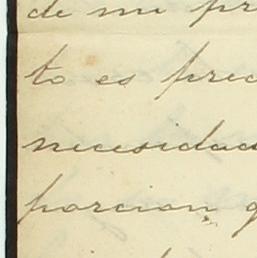 de mi pr
to es prec
necesidad
porcion g